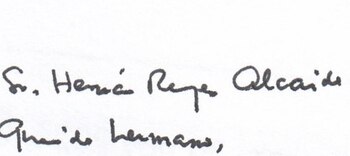 Sr. Hernán Reyes Alcaide
Querido hermano,